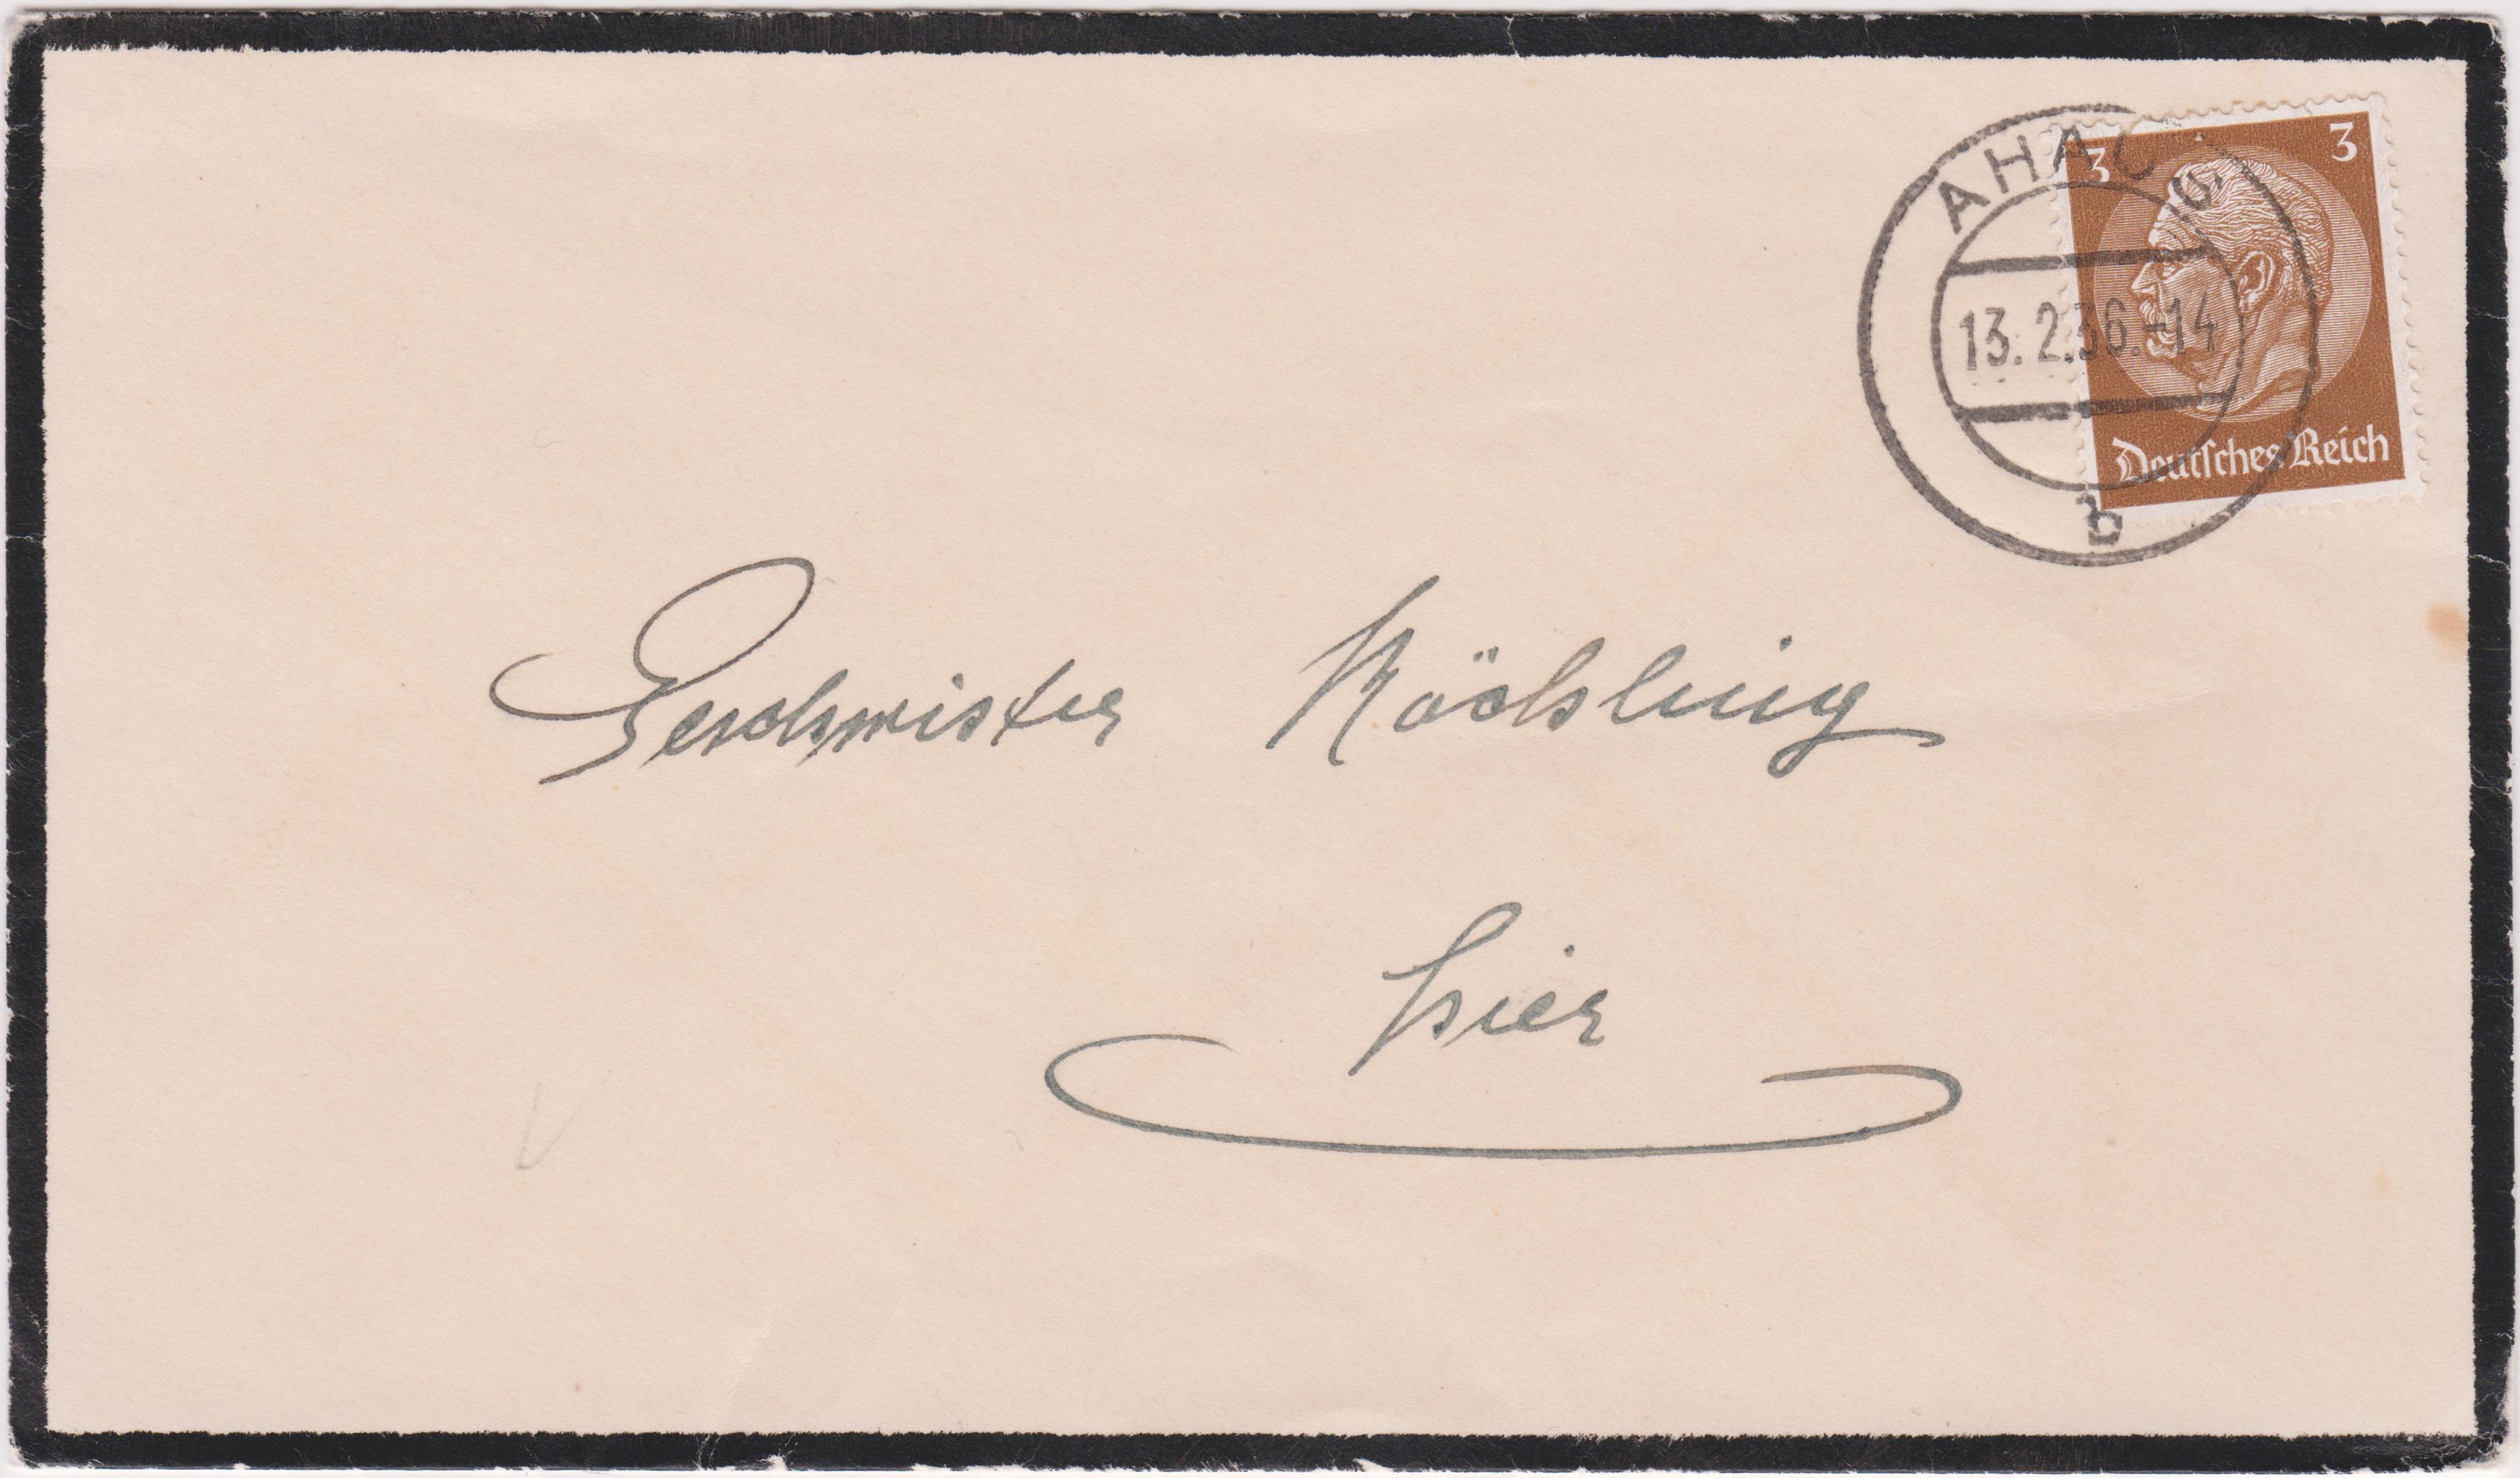 AHAUS
3 3
13.2.36.-14
Deutſches Reich
b
Geschwister
hier